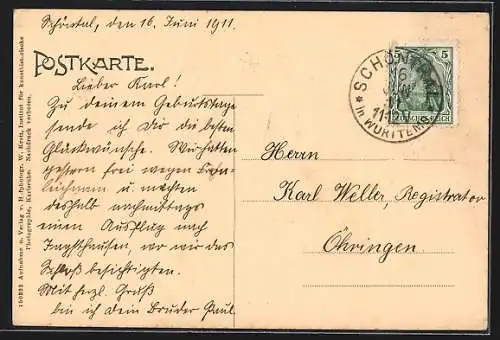 Schöntal, den 16. Juni 1911.
POSTKARTE.
Lieber Karl!
Zu deinem Geburtstage
sende ich Dir die besten
Glückwünsche. Wir hatten
gestern frei wegen Fron-
leichnam u. machten
deshalb nachmittags
einen Ausflug nach
Jagsthausen, wo wir das
Schloß besichtigten.
Mit herzl. Gruß
bin ich dein Bruder Paul.
Herrn
Karl Weller, Registrator
Öhringen.
SCHÖNTAL
16
JUN
11
11-12
* in WÜRTTEMB.
5 5
DEUTSCHES REICH
Aufnahme u. Verlag v. H. W. Kern, Institut für künstlerische
Photographie, Karlsruhe. Nachdruck verboten.